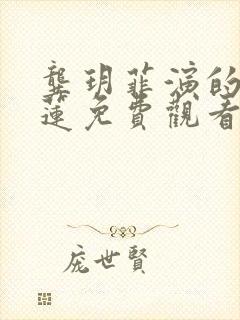 龔玥菲演的
蓮免費觀看
龐世賢